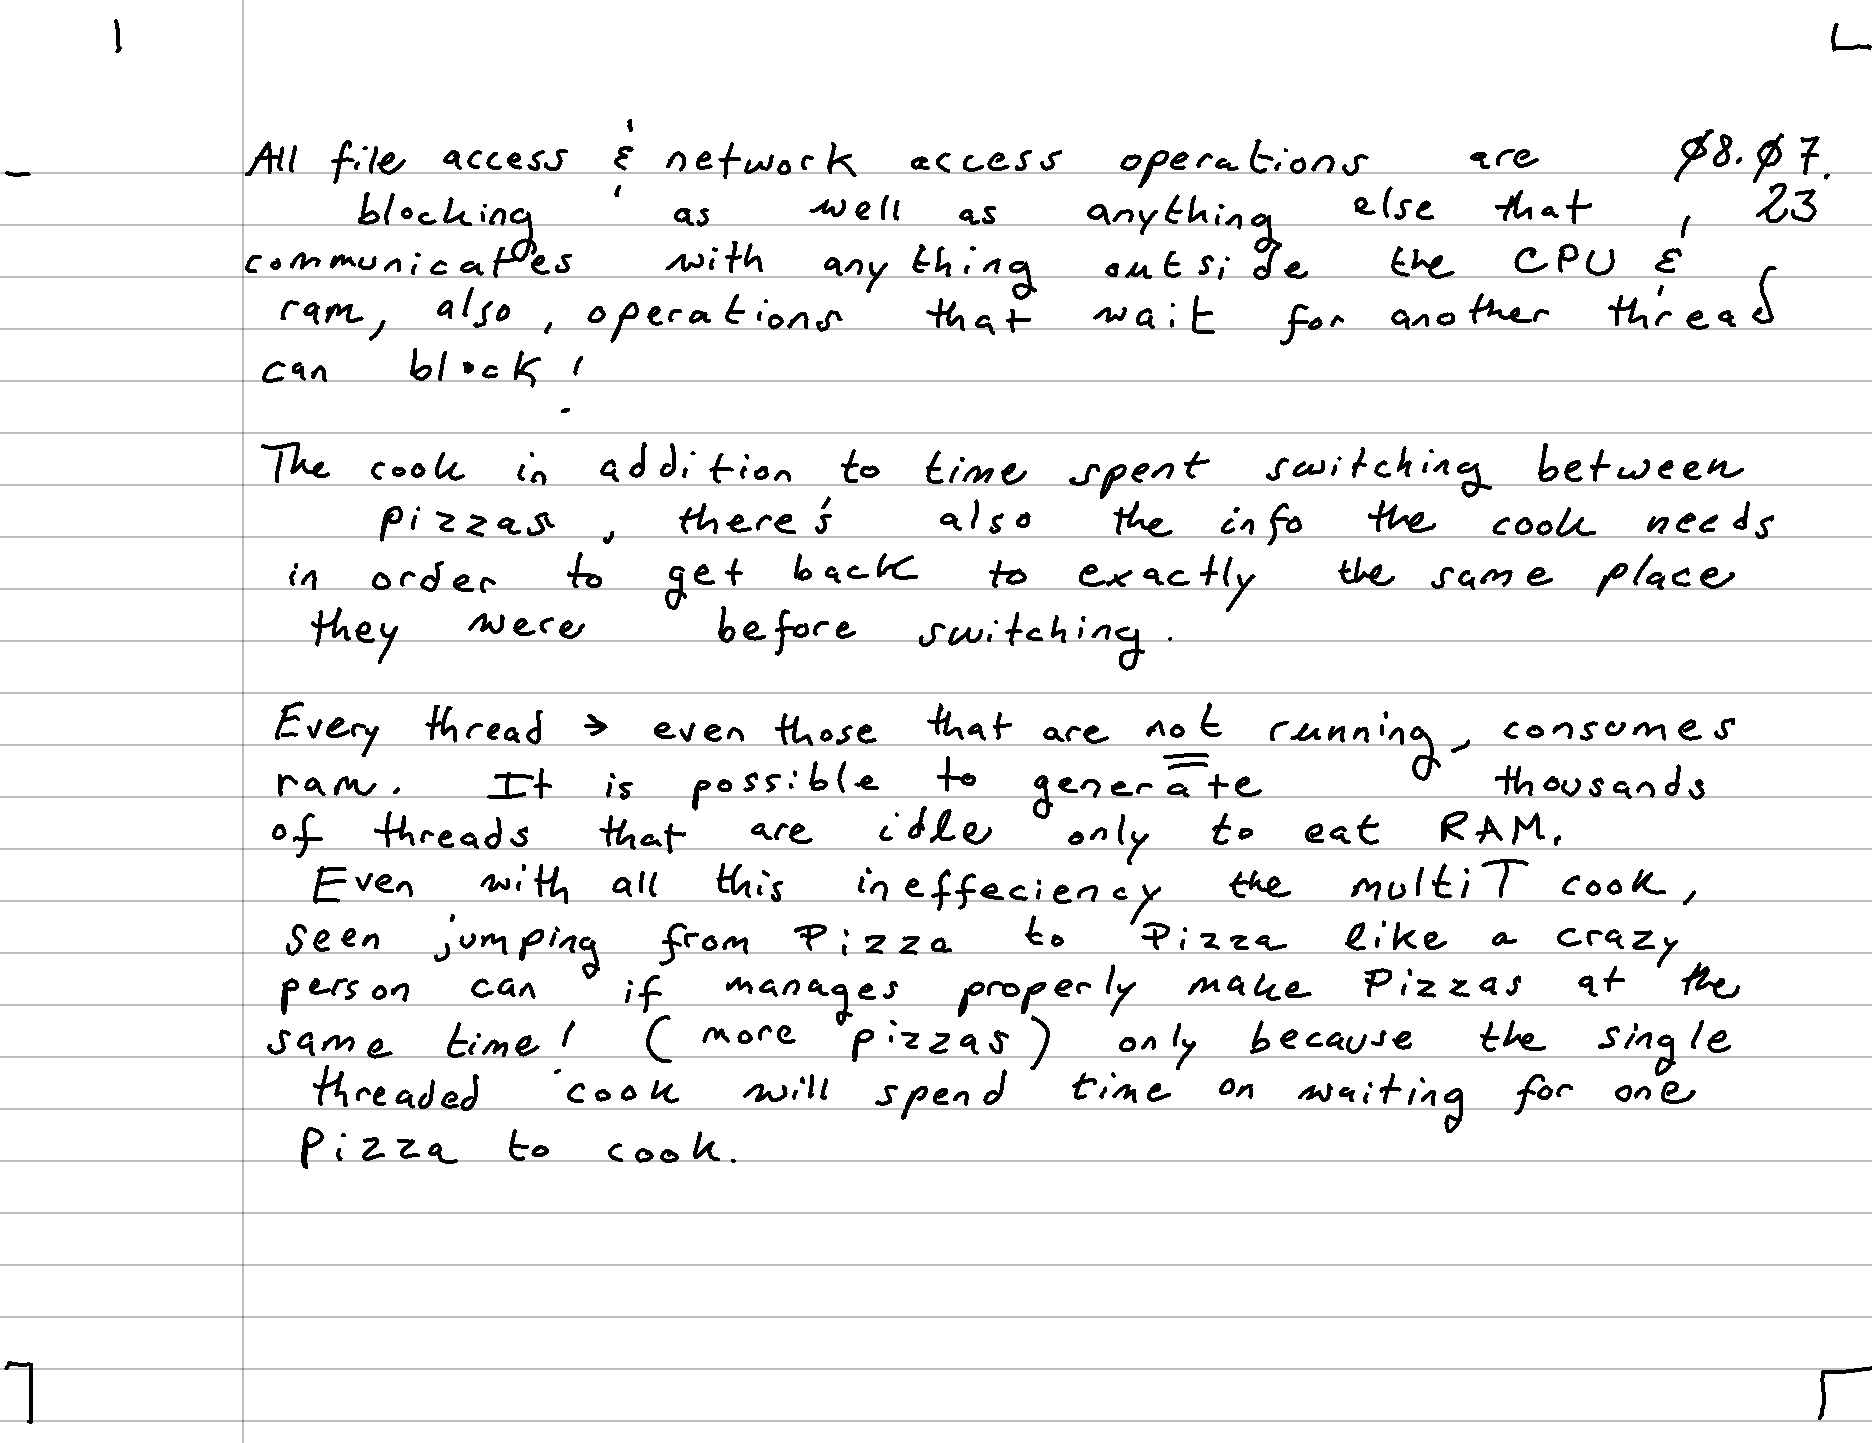 All file access & network access operations are Ø8.Ø7.
blocking as well as anything else that 23
communicates with anything outside the CPU &
ram, also, operations that wait for another thread
can block!
The cook in addition to time spent switching between
pizzas, there's also the info the cook needs
in order to get back to exactly the same place
they were before switching.
Every thread → even those that are not running, consumes
ram. It is possible to generate thousands
of threads that are idle only to eat RAM.
Even with all this ineffeciency the multiT cook,
seen jumping from Pizza to Pizza like a crazy
person can if manages properly make Pizzas at the
same time! (more pizzas) only because the single
threaded cook will spend time on waiting for one
Pizza to cook.